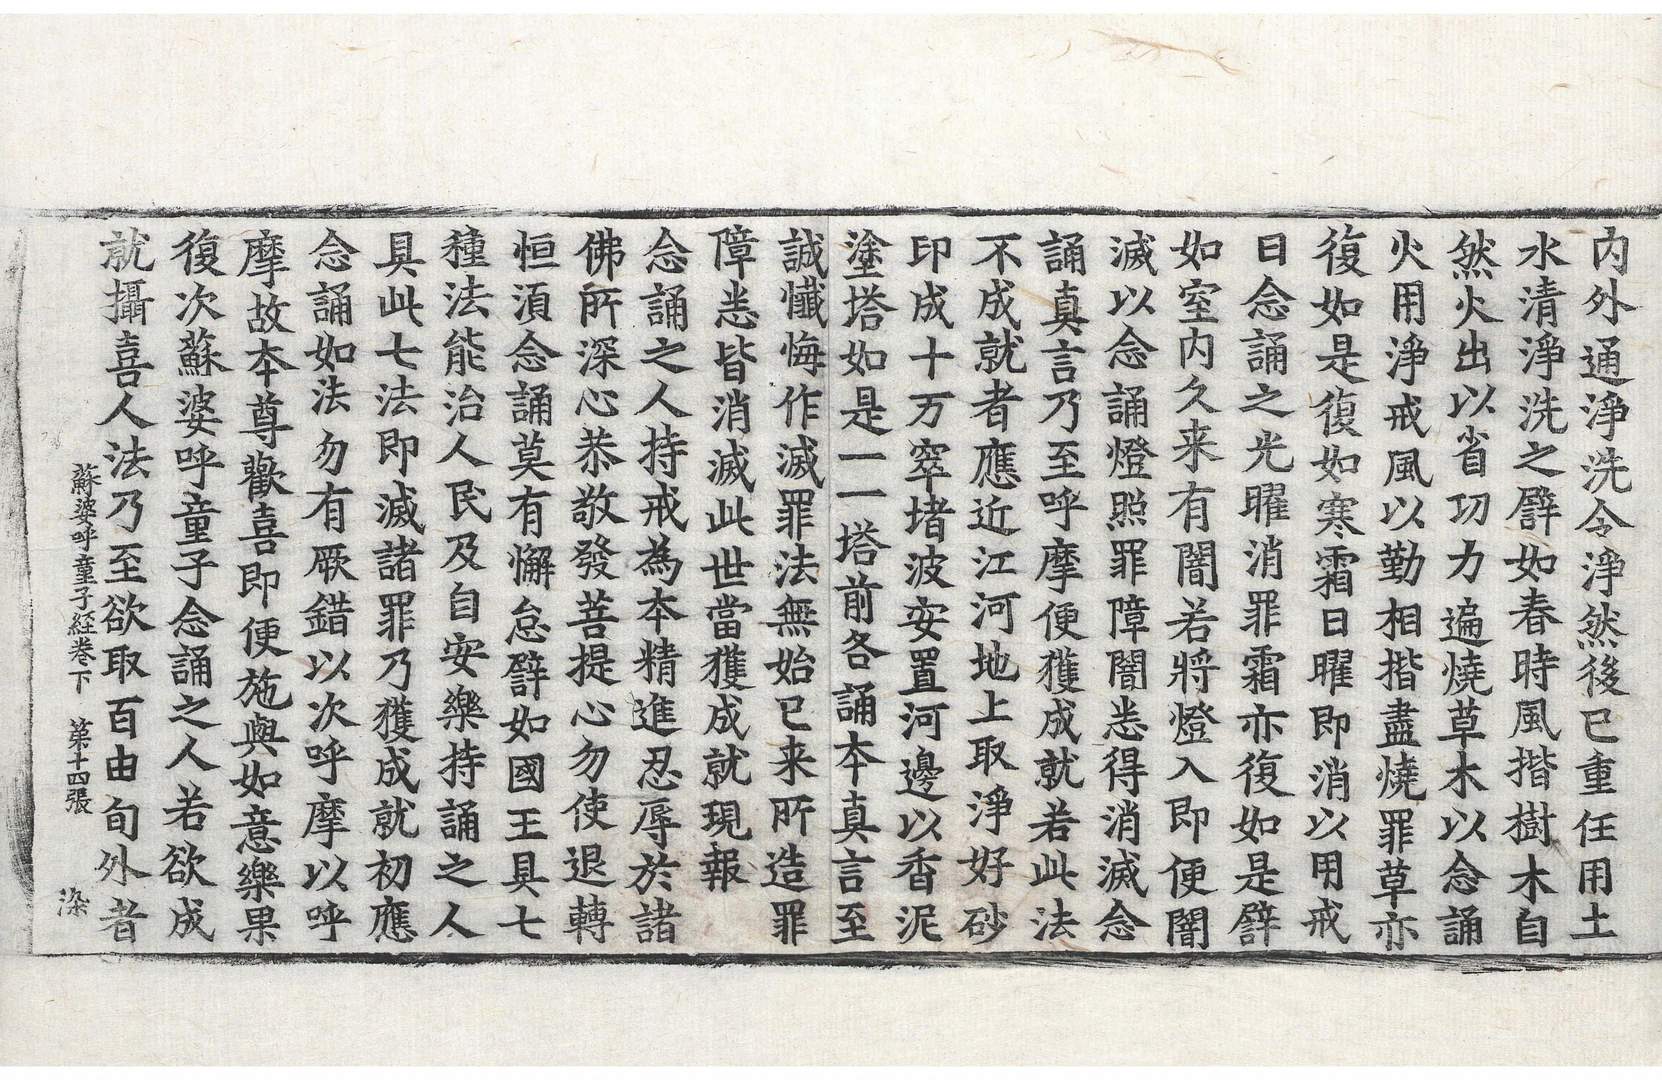 内外通淨洗令淨然後已重任用土
水清淨洗之譬如春時風揩樹木自
然火出以省功力遍燒草木以念誦
火用淨戒風以勤相揩盡燒罪草亦
復如是復如寒霜日曜即消以用戒
日念誦之光曜消罪霜亦復如是譬
如室内久来有闇若將燈入即便闇
滅以念誦燈照罪障闇悉得消滅念
誦真言乃至呼摩便獲成就若此法
不成就者應近江河地上取淨好砂
印成十万窣堵波安置河邊以香泥
塗塔如是一一塔前各誦本真言至
誠懺悔作滅罪法無始已来所造罪
障悉皆消滅此世當獲成就現報
念誦之人持戒為本精進忍辱於諸
佛所深心恭敬發菩提心勿使退轉
恒湏念誦莫有懈怠譬如國王具七
種法能治人民及自安樂持誦之人
具此七法即滅諸罪乃獲成就初應
念誦如法勿有厥錯以次呼摩以呼
摩故本尊歡喜即便施與如意樂果
復次蘇婆呼童子念誦之人若欲成
就攝喜人法乃至欲取百由旬外者
蘇婆呼童子經卷下 第十四張 染